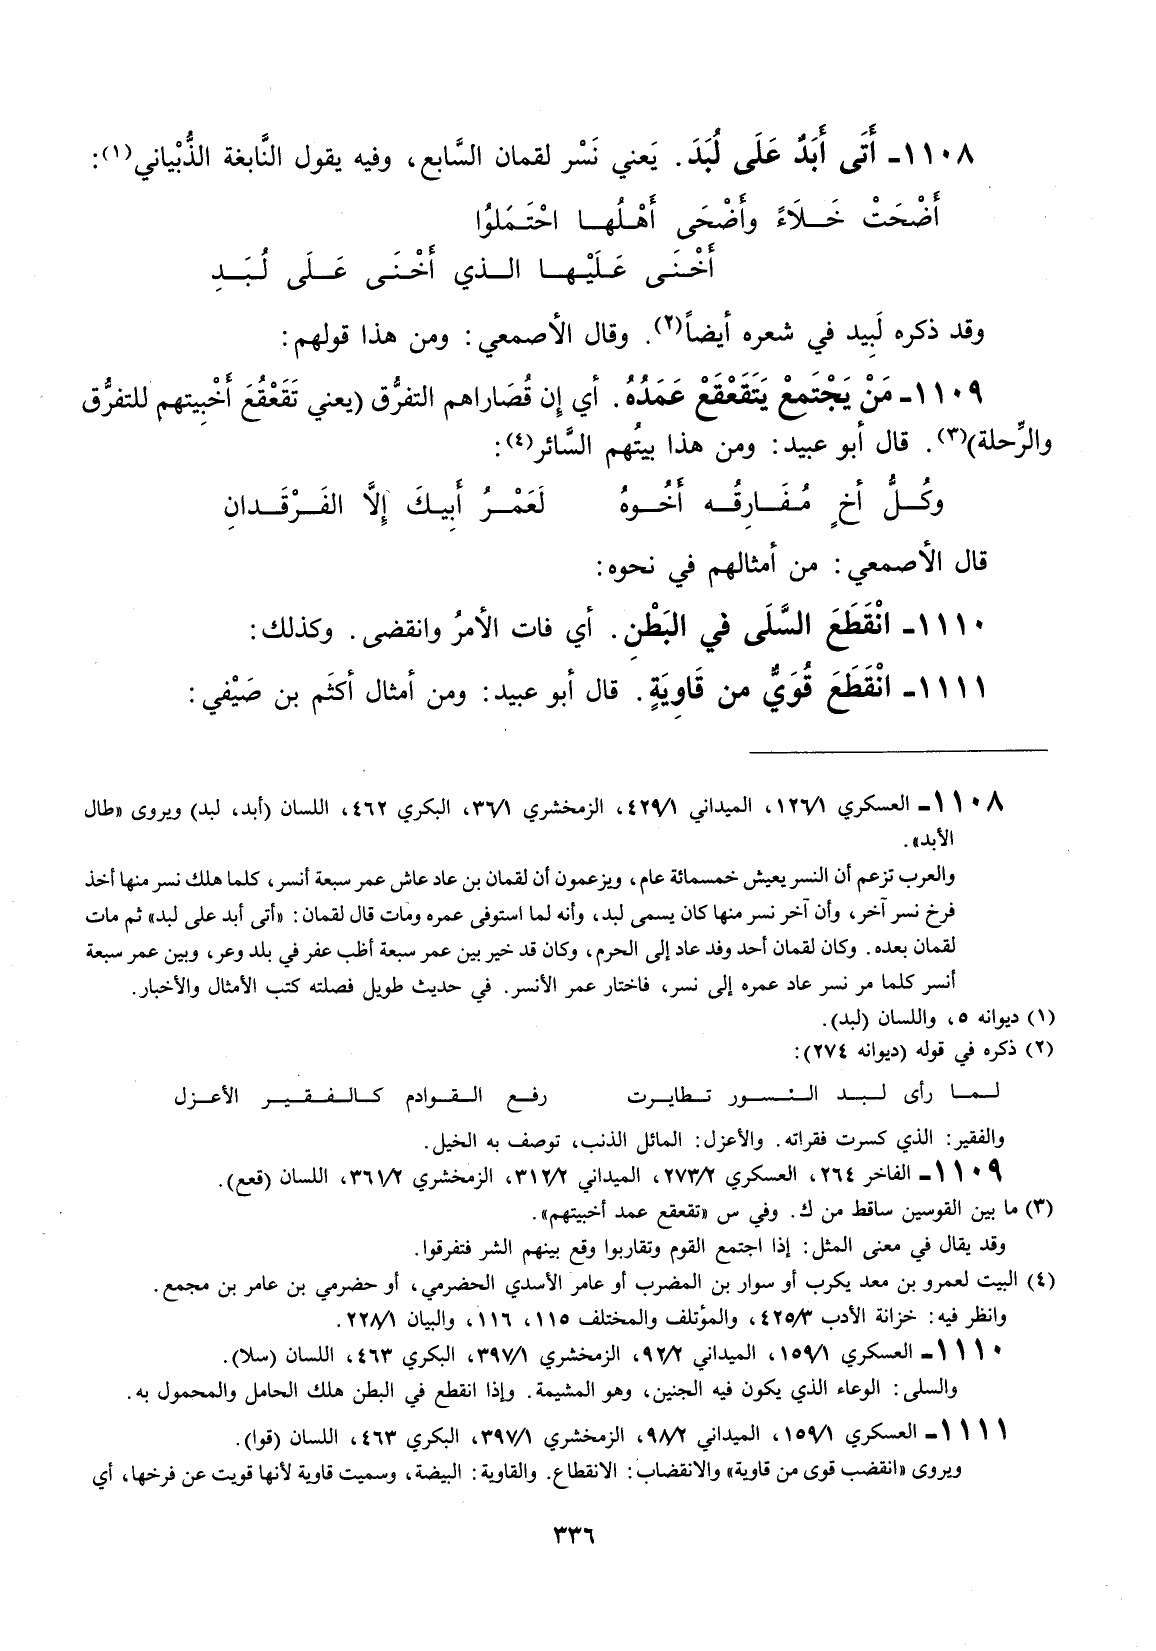 ١١٠٨ـ أَتَى أَبَدٌ عَلَى لُبَدَ. يَعني نَسْر لقمان السَّابع، وفيه يقول النَّابغة الذُّبْياني(١):
أَضْحَتْ خَــلَاءً وأَضْحَى أَهْـلُهــا احْتَمَلوُا
أَخْـنَـى عَـلَيْـهــا الــذي أَخْـنَـى عَــلَى لُـبَــدِ
وقد ذكره لَبِيد في شعره أيضاً(٢). وقال الأصمعي: ومن هذا قولهم:
١١٠٩ـ مَنْ يَجْتَمِعْ يَتَقَعْقَعْ عَمَدُهُ. أي إن قُصَاراهم التفرُّق (يعني تَقَعْقُعَ أَخْبِيتهم للتفرُّق
والرِّحلة)(٣). قال أبو عبيد: ومن هذا بيتُهم السَّائر(٤):
وكُــلُّ أخٍ مُـفَــارِقُــه أَخُــوهُ لَعَمْــرُ أَبِيــكَ إِلَّا الفَــرْقَــدانِ
قال الأصمعي: من أمثالهم في نحوه:
١١١٠ـ انْقَطَعَ السَّلَى في البَطْنِ. أي فات الأمرُ وانقضى. وكذلك:
١١١١ـ انْقَطَعَ قُوَيٌّ من قَاوِيَةٍ. قال أبو عبيد: ومن أمثال أكثَم بن صَيْفي:
١١٠٨ـ العسكري ١٢٦/١، الميداني ٤٢٩/١، الزمخشري ٣٦/١، البكري ٤٦٢، اللسان (أبد، لبد) ويروى «طال
الأبد».
والعرب تزعم أن النسر يعيش خمسمائة عام، ويزعمون أن لقمان بن عاد عاش عمر سبعة أنسر، كلما هلك نسر منها أخذ
فرخ نسر آخر، وأن آخر نسر منها كان يسمى لبد، وأنه لما استوفى عمره ومات قال لقمان: «أتى أبد على لبد» ثم مات
لقمان بعده. وكان لقمان أحد وفد عاد إلى الحرم، وكان قد خير بين عمر سبعة أظب عفر في بلد وعر، وبين عمر سبعة
أنسر كلما مر نسر عاد عمره إلى نسر، فاختار عمر الأنسر. في حديث طويل فصلته كتب الأمثال والأخبار.
(١) ديوانه ٥، واللسان (لبد).
(٢) ذكره في قوله (ديوانه ٢٧٤):
لـمــا رأى لـبــد الـنــســور تـطايــرت رفــع الـقــوادم كــالـفـقـيــر الأعــزل
والفقير: الذي كسرت فقراته. والأعزل: المائل الذنب، توصف به الخيل.
١١٠٩ـ الفاخر ٢٦٤، العسكري ٢٧٣/٢، الميداني ٣١٢/٢، الزمخشري ٣٦١/٢، اللسان (قعع).
(٣) ما بين القوسين ساقط من ك. وفي س «تقعقع عمد أخبيتهم».
وقد يقال في معنى المثل: إذا اجتمع القوم وتقاربوا وقع بينهم الشر فتفرقوا.
(٤) البيت لعمرو بن معد يكرب أو سوار بن المضرب أو عامر الأسدي الحضرمي، أو حضرمي بن عامر بن مجمع.
وانظر فيه: خزانة الأدب ٤٢٥/٣، والمؤتلف والمختلف ١١٥، ١١٦، والبيان ٢٢٨/١.
١١١٠ـ العسكري ١٥٩/١، الميداني ٩٢/٢، الزمخشري ٣٩٧/١، البكري ٤٦٣، اللسان (سلا).
والسلى: الوعاء الذي يكون فيه الجنين، وهو المشيمة. وإذا انقطع في البطن هلك الحامل والمحمول به.
١١١١ـ العسكري ١٥٩/١، الميداني ٩٨/٢، الزمخشري ٣٩٧/١، البكري ٤٦٣، اللسان (قوا).
ويروى «انقضب قوى من قاوية» والانقضاب: الانقطاع. والقاوية: البيضة، وسميت قاوية لأنها قويت عن فرخها، أي
٣٣٦